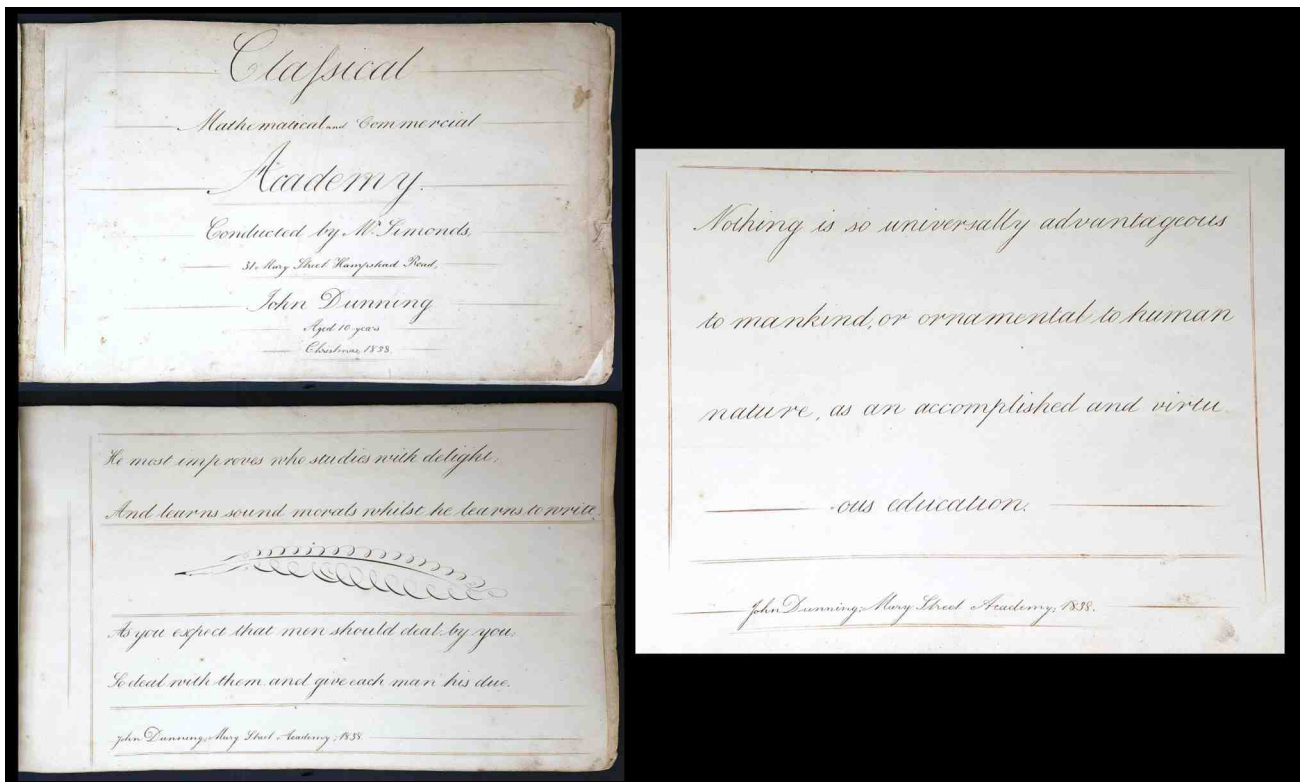 Claſsical
Mathematical and Commercial
Academy.
Conducted by Mr. Simonds,
31, Mary Street Hampstead Road,
John Dunning
Aged 10 years
Christmas, 1838.
He most improves who studies with delight,
And learns sound morals whilst he learns to write.
As you expect that men should deal by you,
So deal with them and give each man his due.
John Dunning, Mary Street Academy, 1838.
Nothing is so universally advantageous
to mankind, or ornamental to human
nature, as an accomplished and virtu-
-ous education.
John Dunning, Mary Street Academy, 1838.